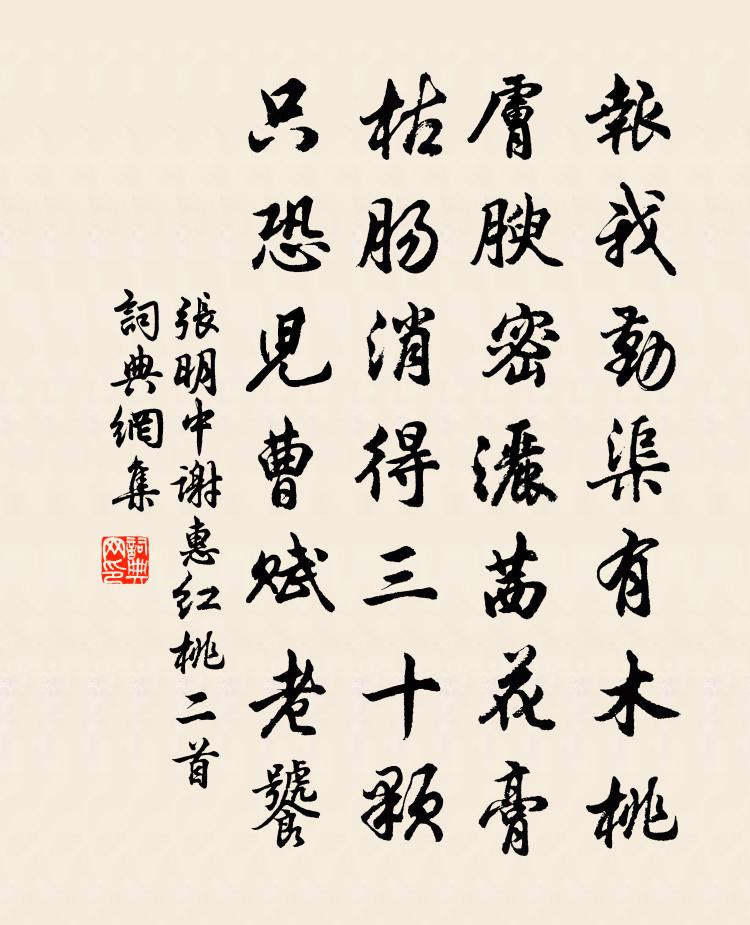 報我勤渠有木桃
膚腴密灑茜花膏
枯肠消得三十顆
只恐児曹賦老饕
張明中谢惠红桃二首
詞典網集
詞典网印